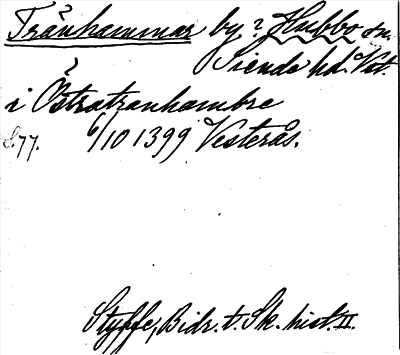 Tranhammar by ? Hubbo sn.
Siende hd. Vstm.
i Östratranhambre
S. 77. 6/10 1399 Vesterås.
Styffe, Bidr. t. Sk. hist. II.